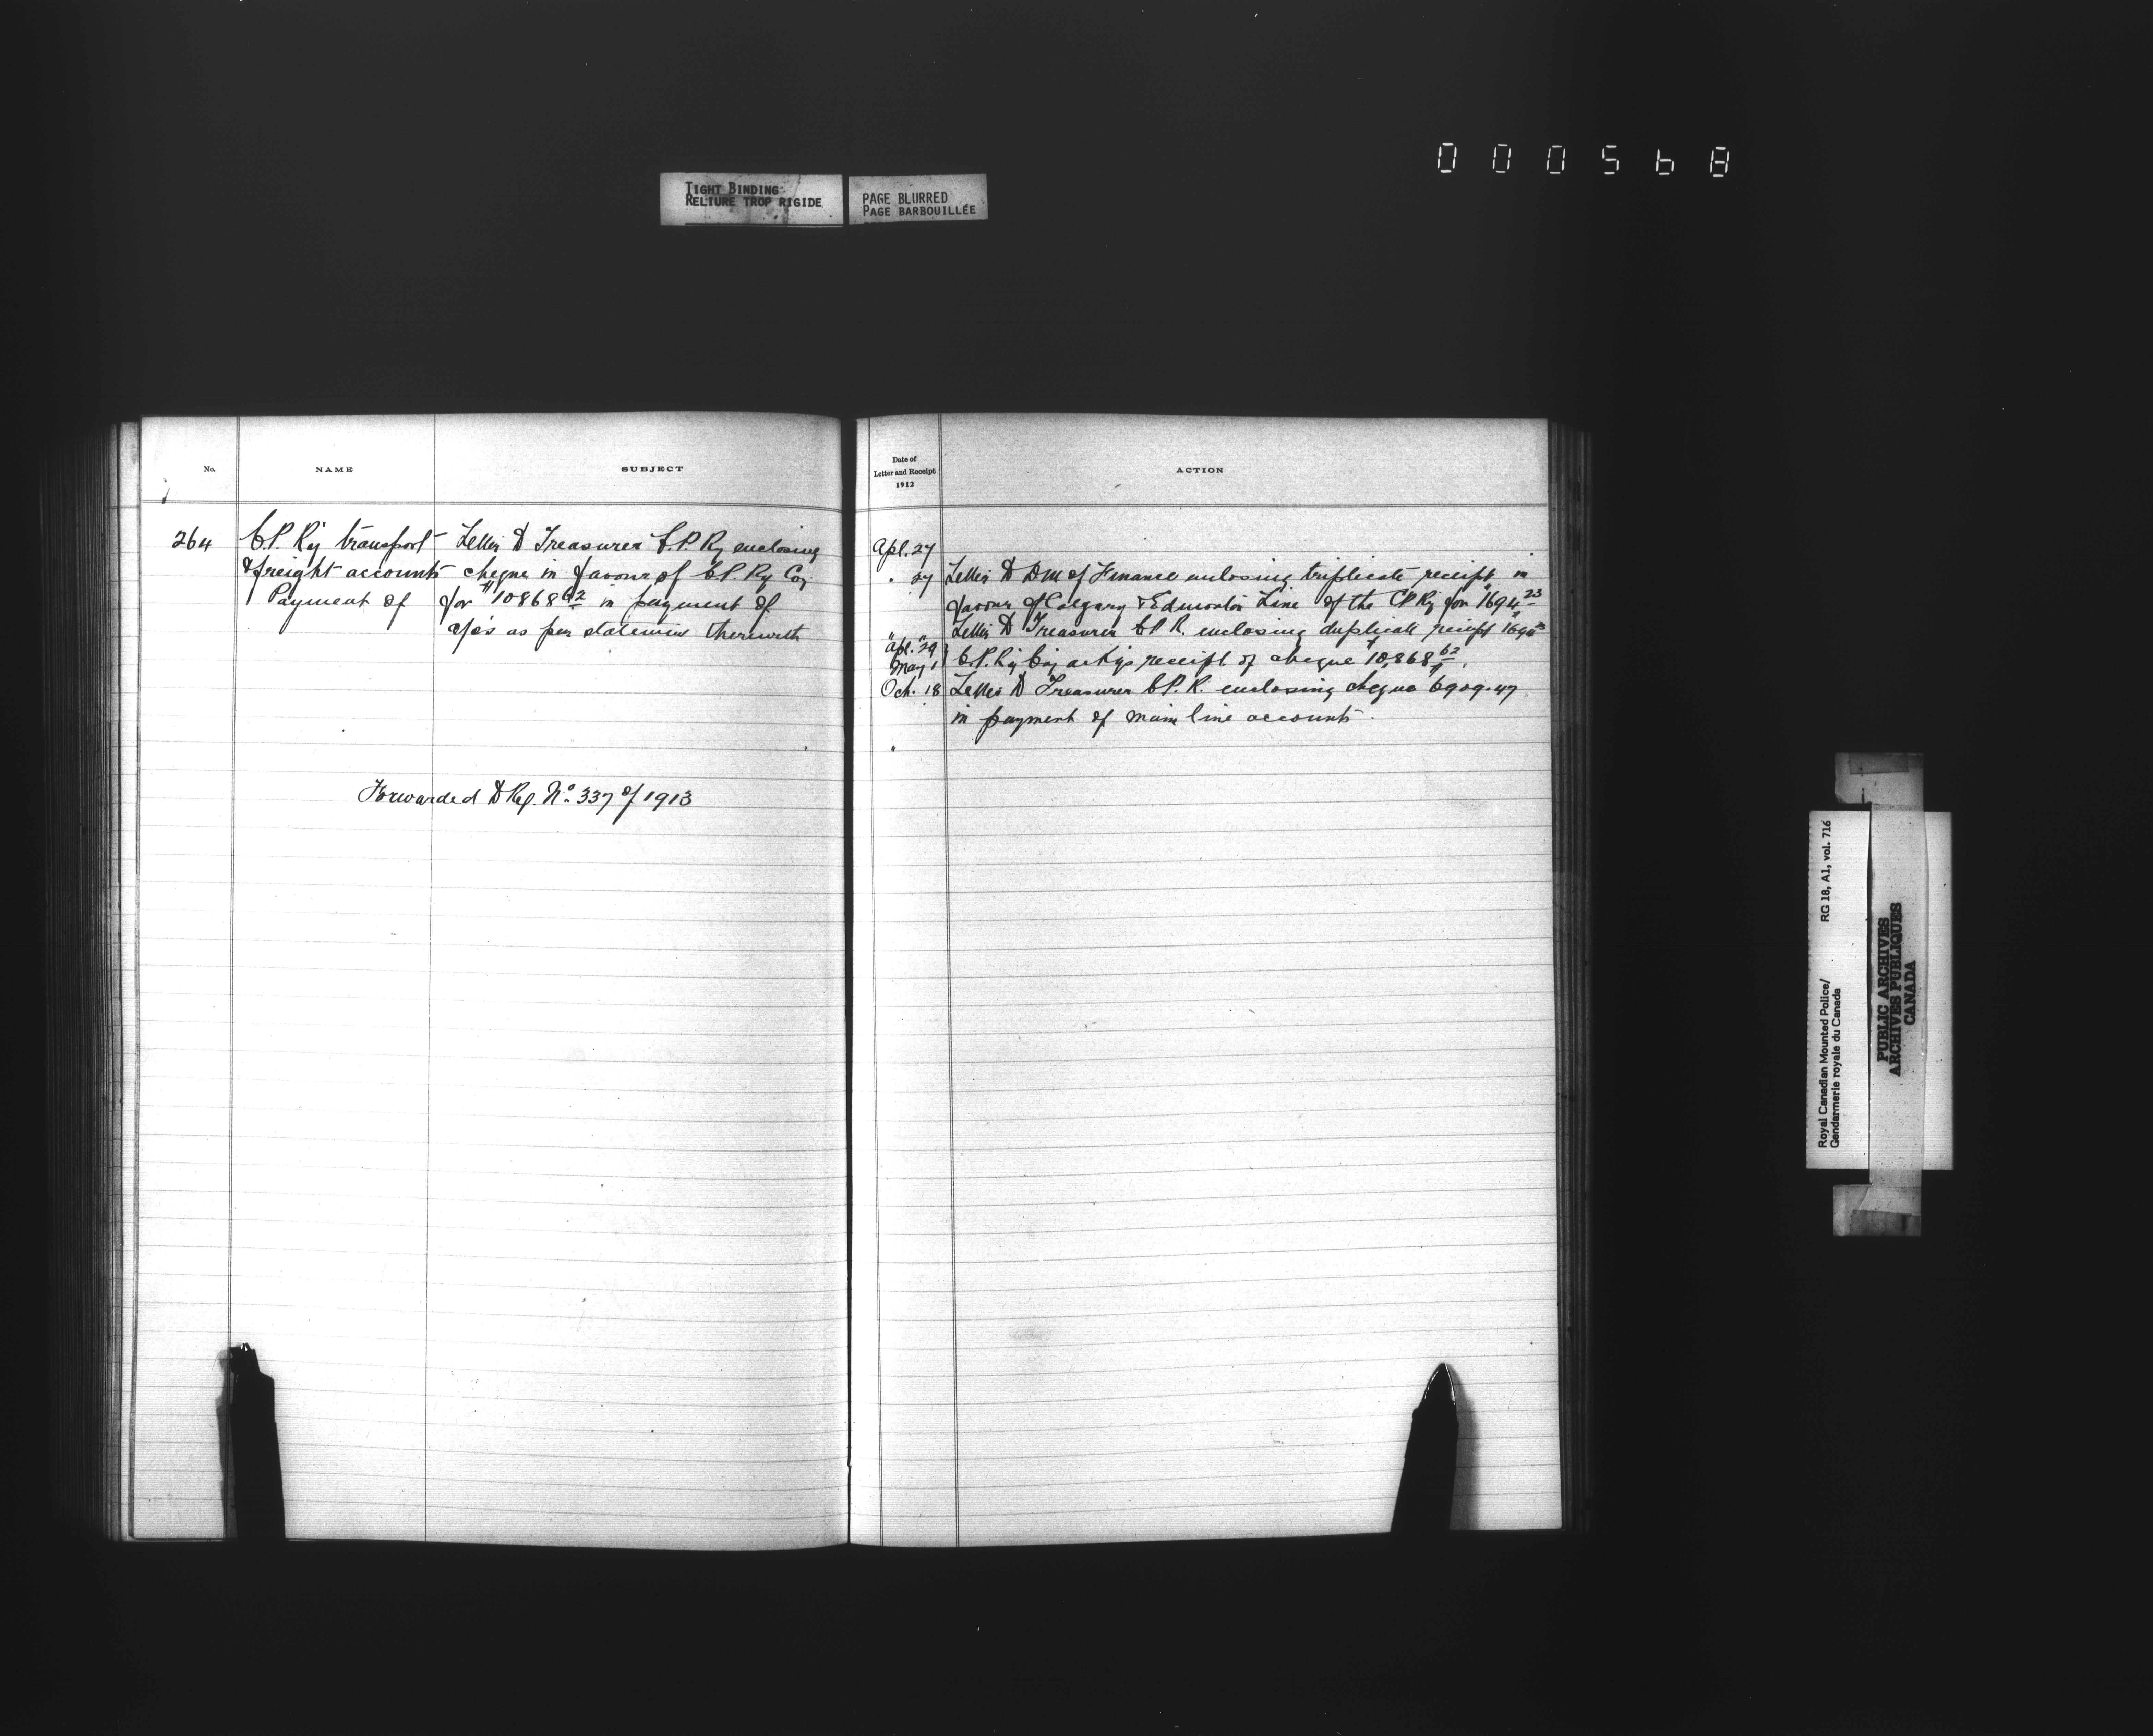 000568
TIGHT BINDING
RELIURE TROP RIGIDE
PAGE BLURRED
PAGE BARBOUILLÉE
No.
NAME
SUBJECT
264
C.P. Ry transport
& freight accounts
Payment of
Letter to Treasurer C.P. Ry enclosing
cheque in favour of C.P. Ry Coy
for $10868 62 in payment of
a/cs as per statement therewith
Forwarded to Reg. No. 337 of 1913
Date of
Letter and Receipt
1912
ACTION
Apl. 27
" 27 Letter to DM of Finance enclosing triplicate receipt in
favour of Calgary & Edmonton Line of the C.P. Ry for $1694 23
" " Letter to Treasurer C.P.R. enclosing duplicate receipt 1694 23
Apl. 29
May 1 C.P. Ry Coy ack'ge receipt of cheque $10,868 62.
Oct. 18 Letter to Treasurer C.P.R. enclosing cheque $6909.47
in payment of main line accounts.
"
Royal Canadian Mounted Police/
Gendarmerie royale du Canada
RG 18, A1, vol. 716
PUBLIC ARCHIVES
ARCHIVES PUBLIQUES
CANADA